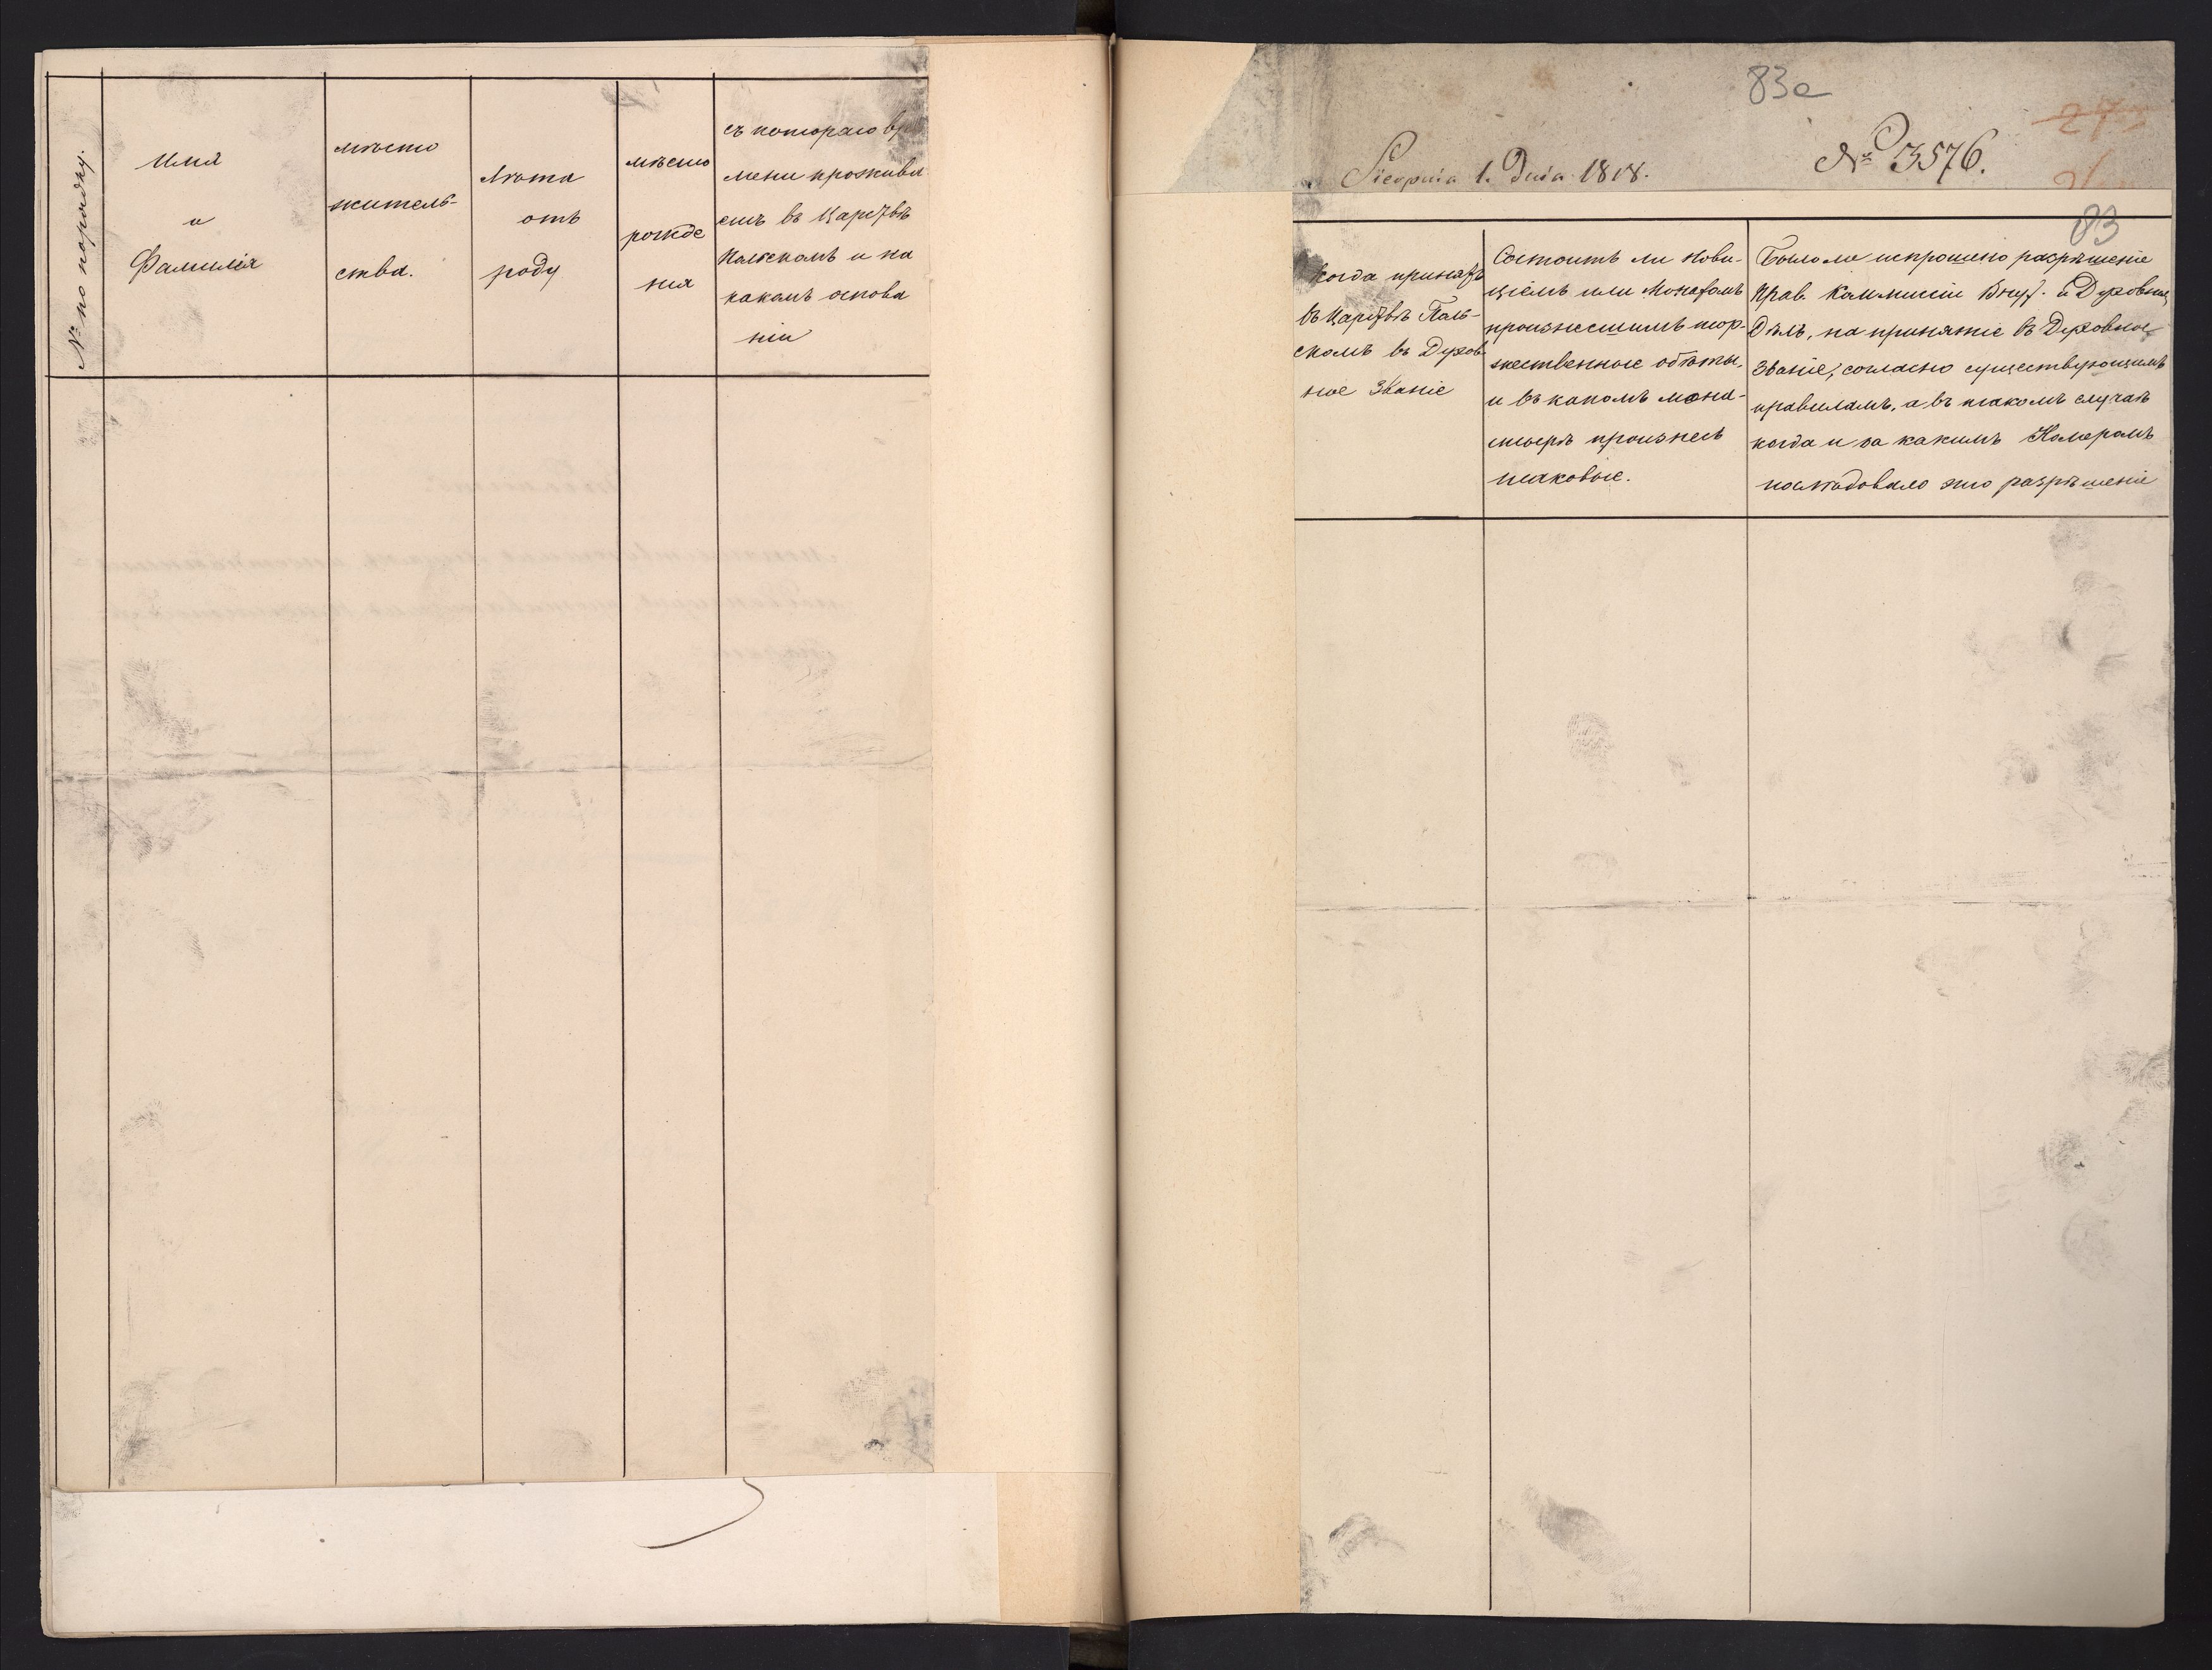 № по порядку.
Имя
и
Фамилія
мѣсто
житель-
ства.
Лѣта
отъ
роду
мѣсто
рожде
нія
съ котораго вре
мени прожива
етъ въ Царствѣ
Польскомъ и на
какомъ основа
ніи
83a
Sierpnia 1. Dnia 1818.
№ 3576.
83
Когда принятъ
въ Царствѣ Поль-
скомъ въ Духов
ное Званіе
Состоитъ ли Нови-
ціемъ или Монахомъ
произнесшимъ тор-
жественные обѣты,
и въ какомъ мона-
стырѣ произнесъ
таковые.
Было ли испрошено разрѣшеніе
Прав. Коммисіи Внут. и Духовныхъ
Дѣлъ, на принятіе въ Духовное
Званіе, согласно существующимъ
правиламъ, а въ такомъ случаѣ
когда и за какимъ Номеромъ
послѣдовало это разрѣшеніе